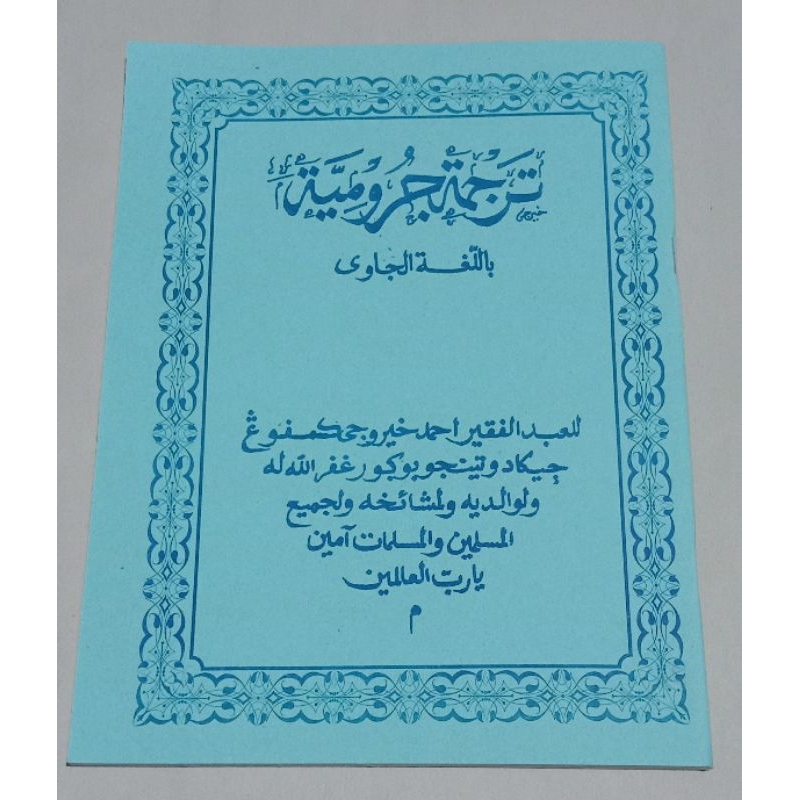 تَرْجَمَة جُرُوْمِيَّة
باللّغة الجاوى
للعبد الفقير احمد خيروجى كمفوڠ
جيكادو تينجو بوكور غفر الله له
ولوالديه ولمشائخه ولجميع
المسلمين والمسلمات آمين
يا ربّ العالمين
م